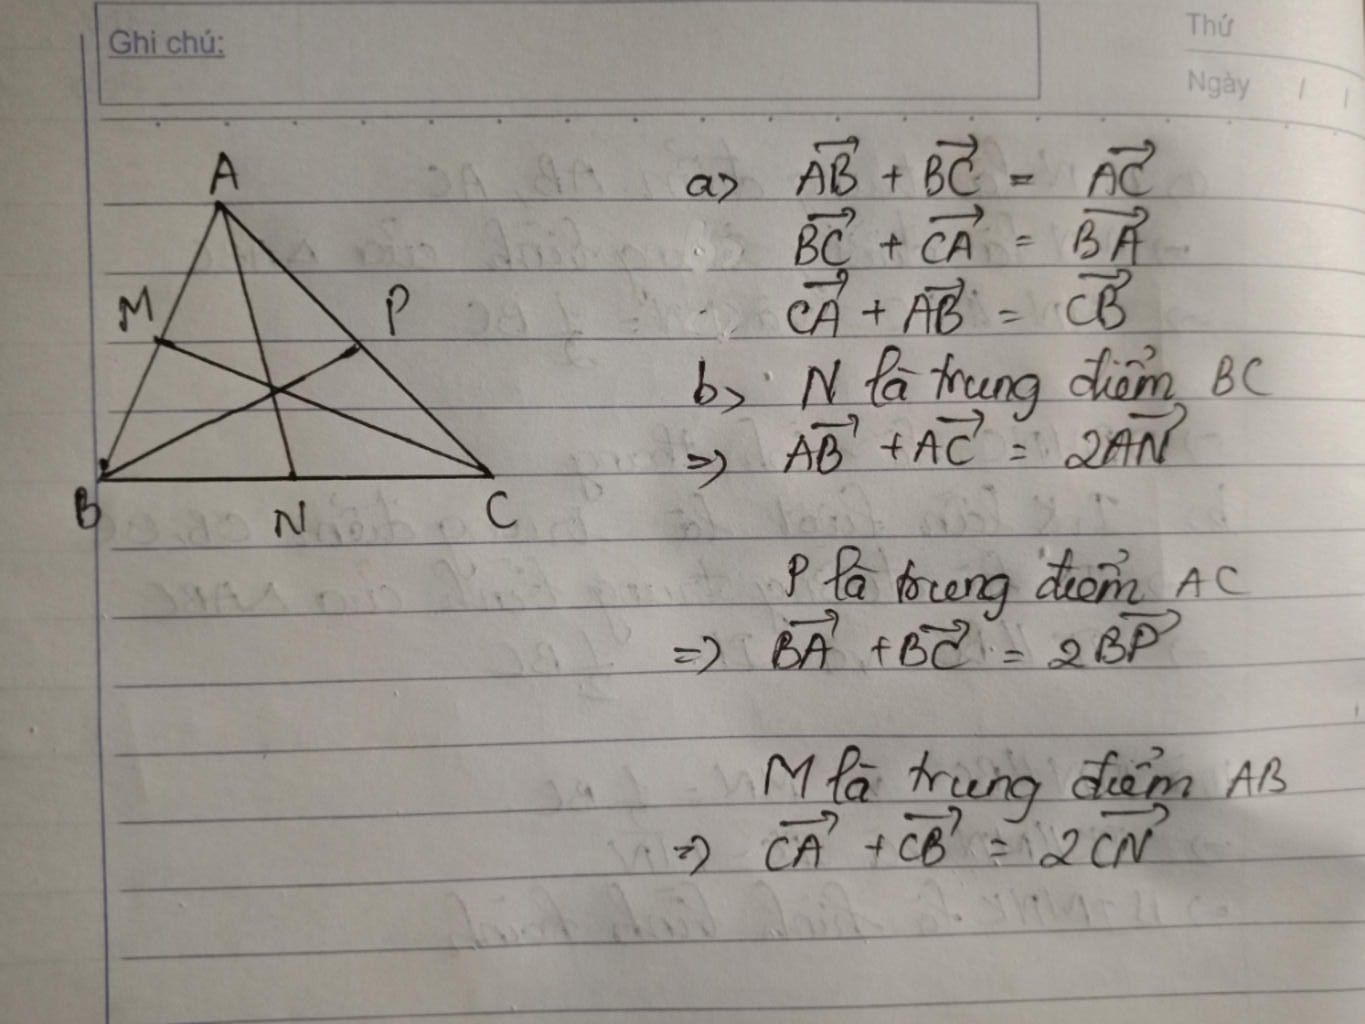 Ghi chú:
Thứ
Ngày / /
A
M
P
B
N
C
a> \overrightarrow{AB} + \overrightarrow{BC} = \overrightarrow{AC}
\overrightarrow{BC} + \overrightarrow{CA} = \overrightarrow{BA}
\overrightarrow{CA} + \overrightarrow{AB} = \overrightarrow{CB}
b> N là trung điểm BC
=> \overrightarrow{AB} + \overrightarrow{AC} = 2\overrightarrow{AN}
P là trung điểm AC
=> \overrightarrow{BA} + \overrightarrow{BC} = 2\overrightarrow{BP}
M là trung điểm AB
=> \overrightarrow{CA} + \overrightarrow{CB} = 2\overrightarrow{CN}